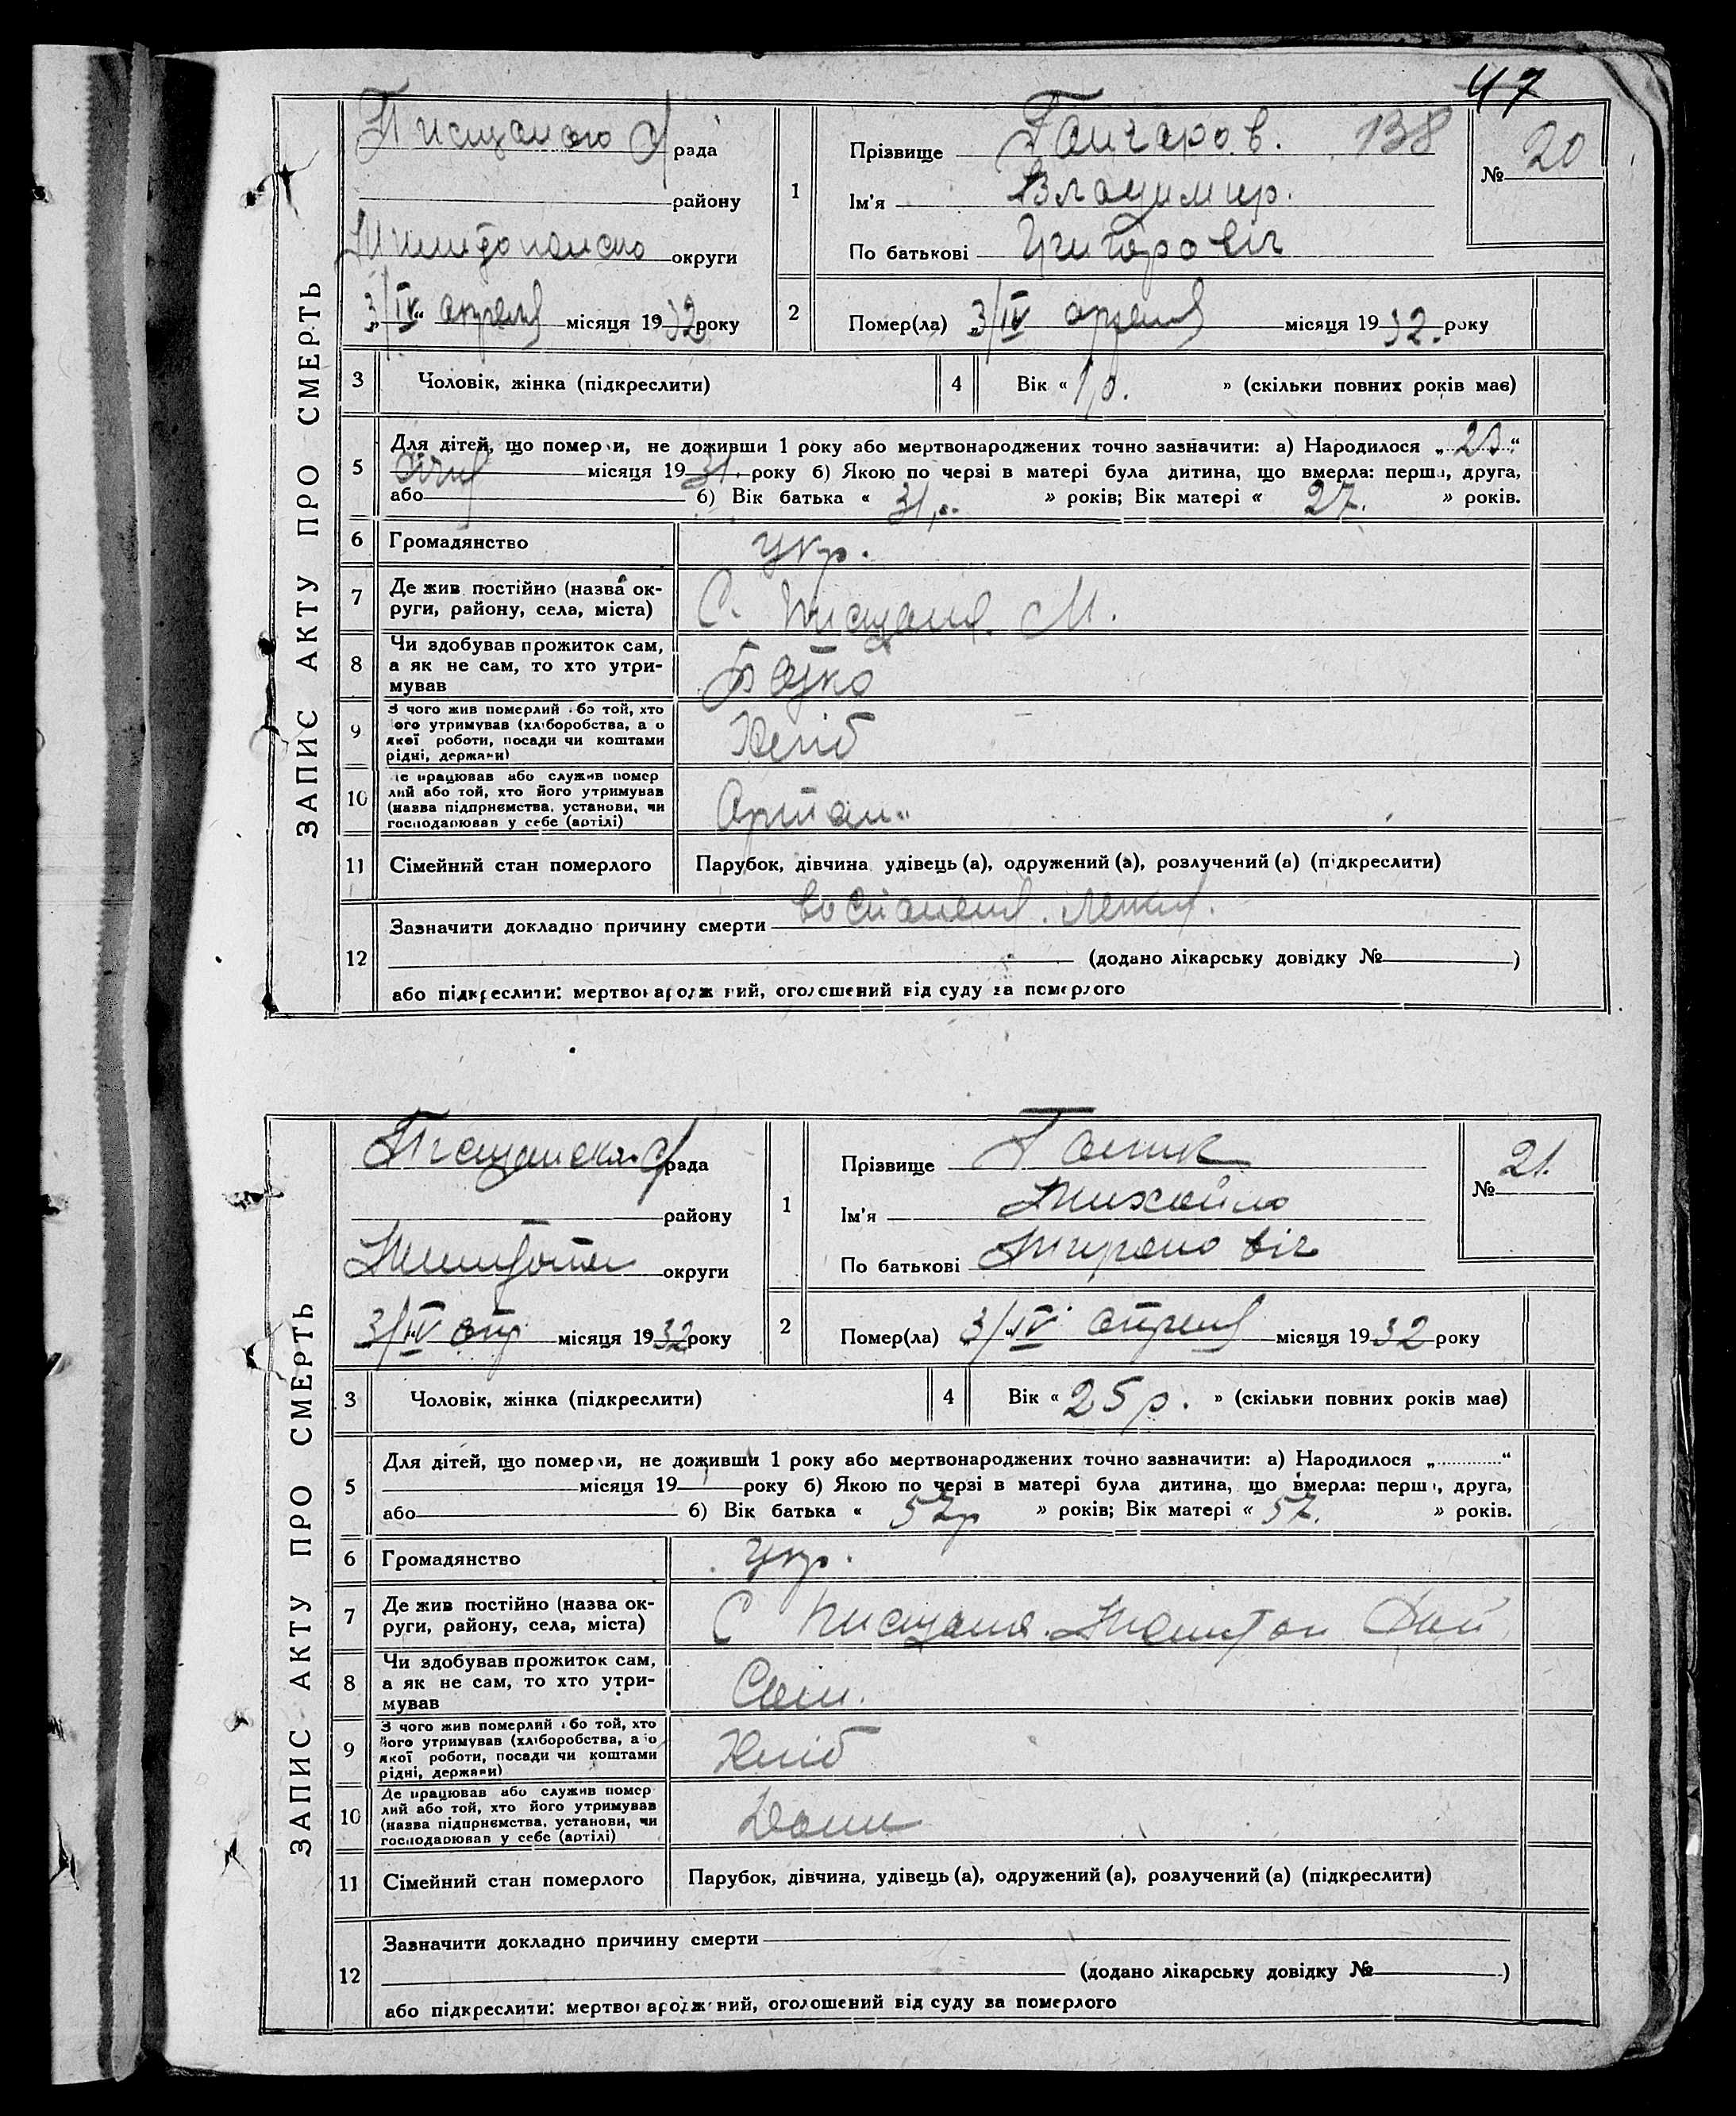 47
ЗАПИС АКТУ ПРО СМЕРТЬ
рада
району
округи
3/IV апреля місяця 1932 року
1
Прізвище Ганчаров. 138
Ім'я Владимир.
По батькові
№ 20
2
Помер(ла) 3/IV апреля місяця 1932. року
3 Чоловік, жінка (підкреслити)
4 Вік « 1 р. » (скільки повних років має)
5
Для дітей, що померли, не доживши 1 року або мертвонароджених точно зазначити: а) Народилося „ “
місяця 1931. року б) Якою по черзі в матері була дитина, що вмерла: перша, друга,
або б) Вік батька « 31 » років; Вік матері « 27. » років.
6 Громадянство укр.
7 Де жив постійно (назва ок-
руги, району, села, міста) С. Писщаня. М.
8 Чи здобував прожиток сам,
а як не сам, то хто утри-
мував Батко
9 З чого жив померлий або той, хто
його утримував (хліборобства, або
якої роботи, посади чи коштами
рідні, держави) Хліб
10 Де працював або служив помер
лий або той, хто його утримував
(назва підприємства, установи, чи
господарював у себе (артілі)
11 Сімейний стан померлого Парубок, дівчина, удівець (а), одружений (а), розлучений (а) (підкреслити)
12
Зазначити докладно причину смерти Воспаления. Легких.
(додано лікарську довідку № )
або підкреслити: мертвонароджений, оголошений від суду за померлого
ЗАПИС АКТУ ПРО СМЕРТЬ
рада
району
округи
3/IV апр місяця 1932 року
1
Прізвище
Ім'я Михайло
По батькові
№ 21.
2
Помер(ла) 3/IV апреля місяця 1932 року
3 Чоловік, жінка (підкреслити)
4 Вік « 25 р. » (скільки повних років має)
5
Для дітей, що померли, не доживши 1 року або мертвонароджених точно зазначити: а) Народилося „ “
місяця 19 року б) Якою по черзі в матері була дитина, що вмерла: перша, друга,
або б) Вік батька « 57р » років; Вік матері « 57. » років.
6 Громадянство укр.
7 Де жив постійно (назва ок-
руги, району, села, міста) С Писщаня.
8 Чи здобував прожиток сам,
а як не сам, то хто утри-
мував Сам.
9 З чого жив померлий або той, хто
його утримував (хліборобства, або
якої роботи, посади чи коштами
рідні, держави) Хліб
10 Де працював або служив помер
лий або той, хто його утримував
(назва підприємства, установи, чи
господарював у себе (артілі)
11 Сімейний стан померлого Парубок, дівчина, удівець (а), одружений (а), розлучений (а) (підкреслити)
12
Зазначити докладно причину смерти
(додано лікарську довідку № )
або підкреслити: мертвонароджений, оголошений від суду за померлого